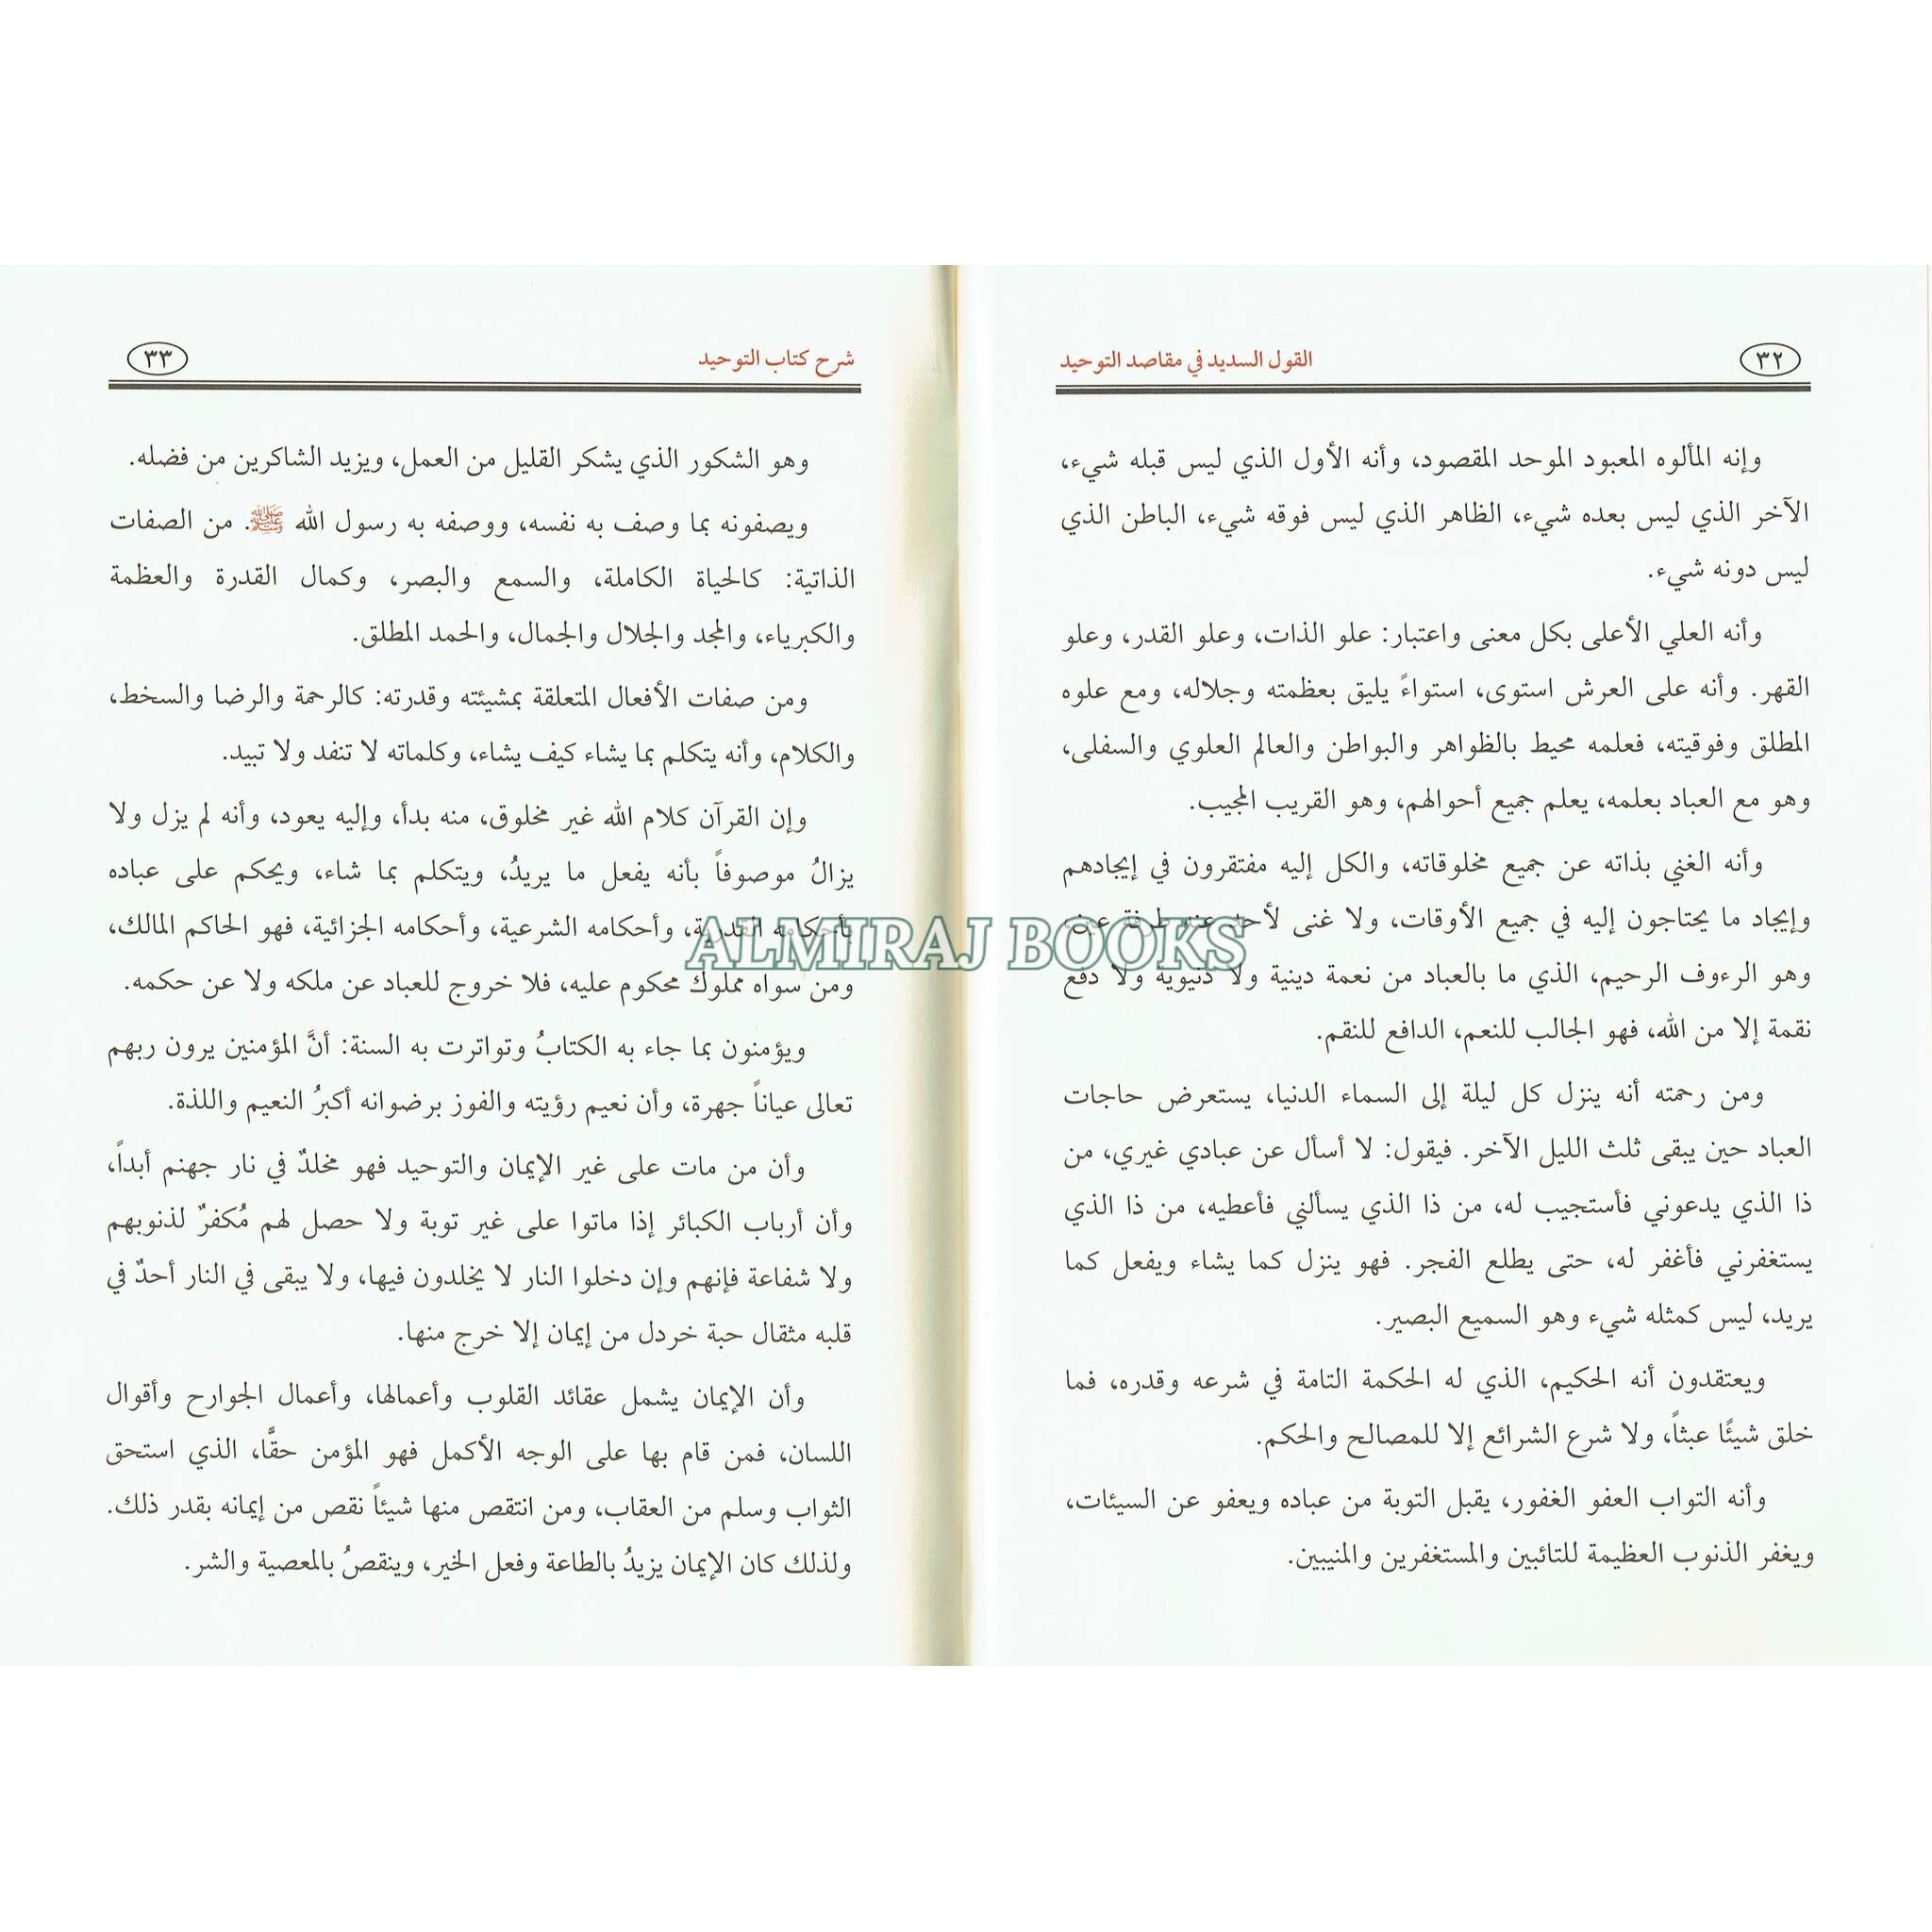 القول السديد في مقاصد التوحيد
٣٢
وإنه المألوه المعبود الموحد المقصود، وأنه الأول الذي ليس قبله شيء،
الآخر الذي ليس بعده شيء، الظاهر الذي ليس فوقه شيء، الباطن الذي
ليس دونه شيء.
وأنه العلي الأعلى بكل معنى واعتبار: علو الذات، وعلو القدر، وعلو
القهر. وأنه على العرش استوى، استواءً يليق بعظمته وجلاله، ومع علوه
المطلق وفوقيته، فعلمه محيط بالظواهر والبواطن والعالم العلوي والسفلى،
وهو مع العباد بعلمه، يعلم جميع أحوالهم، وهو القريب المجيب.
وأنه الغني بذاته عن جميع مخلوقاته، والكل إليه مفتقرون في إيجادهم
وإيجاد ما يحتاجون إليه في جميع الأوقات، ولا غنى لأحد عنه طرفة عين،
وهو الرءوف الرحيم، الذي ما بالعباد من نعمة دينية ولا دنيوية ولا دفع
نقمة إلا من الله، فهو الجالب للنعم، الدافع للنقم.
ومن رحمته أنه ينزل كل ليلة إلى السماء الدنيا، يستعرض حاجات
العباد حين يبقى ثلث الليل الآخر. فيقول: لا أسأل عن عبادي غيري، من
ذا الذي يدعوني فأستجيب له، من ذا الذي يسألني فأعطيه، من ذا الذي
يستغفرني فأغفر له، حتى يطلع الفجر. فهو ينزل كما يشاء ويفعل كما
يريد، ليس كمثله شيء وهو السميع البصير.
ويعتقدون أنه الحكيم، الذي له الحكمة التامة في شرعه وقدره، فما
خلق شيئًا عبثاً، ولا شرع الشرائع إلا للمصالح والحكم.
وأنه التواب العفو الغفور، يقبل التوبة من عباده ويعفو عن السيئات،
ويغفر الذنوب العظيمة للتائبين والمستغفرين والمنيبين.
شرح كتاب التوحيد
٣٣
وهو الشكور الذي يشكر القليل من العمل، ويزيد الشاكرين من فضله.
ويصفونه بما وصف به نفسه، ووصفه به رسول الله ﷺ. من الصفات
الذاتية: كالحياة الكاملة، والسمع والبصر، وكمال القدرة والعظمة
والكبرياء، والمجد والجلال والجمال، والحمد المطلق.
ومن صفات الأفعال المتعلقة بمشيئته وقدرته: كالرحمة والرضا والسخط،
والكلام، وأنه يتكلم بما يشاء كيف يشاء، وكلماته لا تنفد ولا تبيد.
وإن القرآن كلام الله غير مخلوق، منه بدأ، وإليه يعود، وأنه لم يزل ولا
يزالُ موصوفاً بأنه يفعل ما يريدُ، ويتكلم بما شاء، ويحكم على عباده
بأحكامه القدرية، وأحكامه الشرعية، وأحكامه الجزائية، فهو الحاكم المالك،
ومن سواه مملوك محكوم عليه، فلا خروج للعباد عن ملكه ولا عن حكمه.
ويؤمنون بما جاء به الكتابُ وتواترت به السنة: أنَّ المؤمنين يرون ربهم
تعالى عياناً جهرة، وأن نعيم رؤيته والفوز برضوانه أكبرُ النعيم واللذة.
وأن من مات على غير الإيمان والتوحيد فهو مخلدٌ في نار جهنم أبداً،
وأن أرباب الكبائر إذا ماتوا على غير توبة ولا حصل لهم مُكفرٌ لذنوبهم
ولا شفاعة فإنهم وإن دخلوا النار لا يخلدون فيها، ولا يبقى في النار أحدٌ في
قلبه مثقال حبة خردل من إيمان إلا خرج منها.
وأن الإيمان يشمل عقائد القلوب وأعمالها، وأعمال الجوارح وأقوال
اللسان، فمن قام بها على الوجه الأكمل فهو المؤمن حقًّا، الذي استحق
الثواب وسلم من العقاب، ومن انتقص منها شيئاً نقص من إيمانه بقدر ذلك.
ولذلك كان الإيمان يزيدُ بالطاعة وفعل الخير، وينقصُ بالمعصية والشر.
ALMIRAJ BOOKS